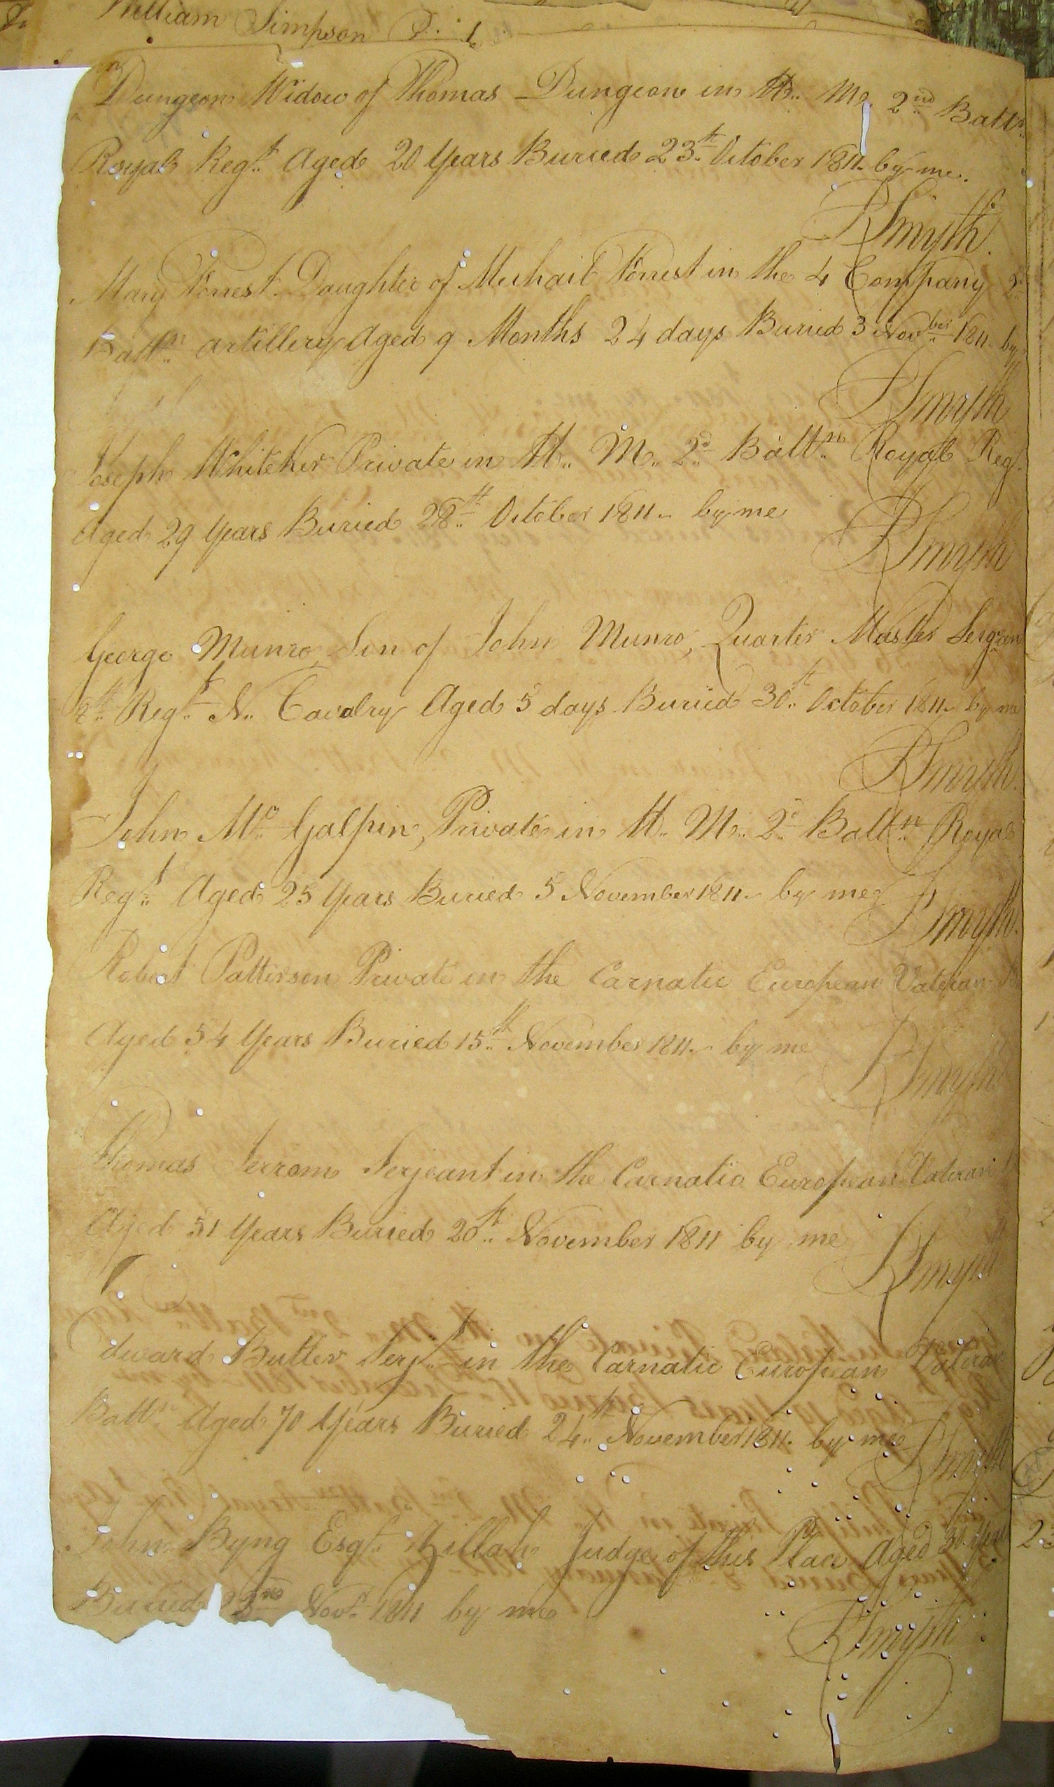 William Simpson
Dungeon Widow of Thomas Dungeon in H.. M.. 2nd Battn
Royal Regt. Aged 20 Years Buried 23th October 1811 by me.
RSmyth
Mary Forrest Daughter of Michail Forrest in the 4 Company 2
Battn artillery Aged 9 Months 24 days Buried 3 Novber 1811 by
RSmyth
Joseph Whiteker Private in H.. M.. 2d Battn Royal Regt
Aged 29 Years Buried 28th October 1811 by me
RSmyth
George Munro Son of John Munro, Quarter Master Sergean
Regt N.. Cavalry Aged 5 days Buried 30th October 1811 by me
RSmyth
John Mc Galpin, Private in H.. M.. 2d Battn Royal
Regt Aged 25 Years Buried 5 November 1811 by me
RSmyth
Robert Patterson Private in the Carnatic European Vateran
Aged 54 Years Buried 15th November 1811 by me
RSmyth
Thomas Jerrom Serjeant in the Carnatic European Vateran
Aged 51 Years Buried 20th November 1811 by me
RSmyth
Edward Butler Serjt in the Carnatic European Vateran
Battn Aged 70 Years Buried 24th November 1811 by me
RSmyth
John Byng Esqr. Zillah Judge of this Place Aged
Buried Novr 1811 by me
RSmyth